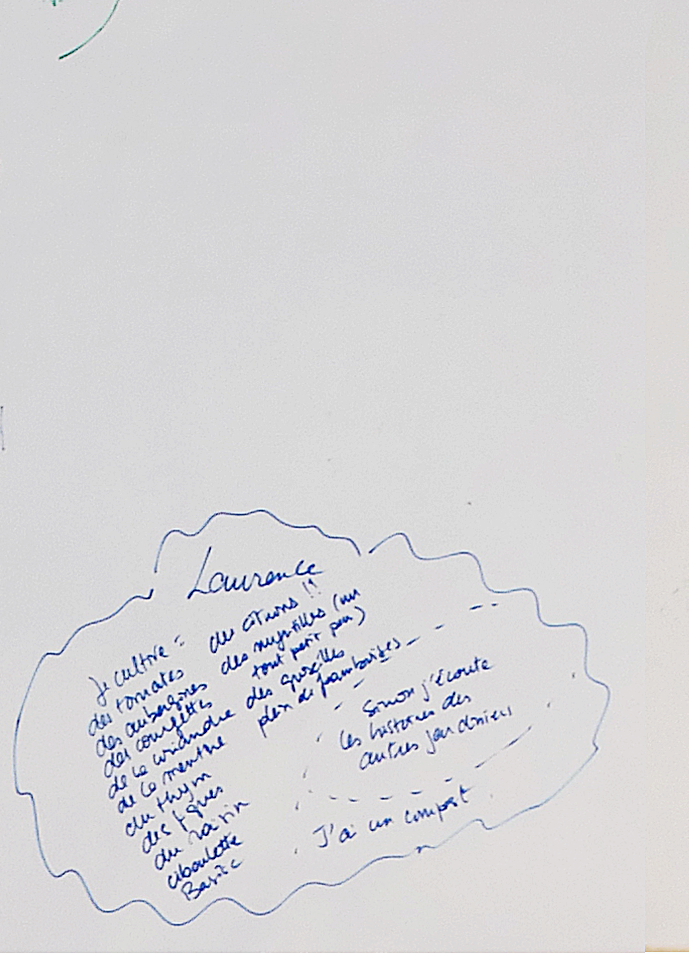 Laurence
Je cultive :
des tomates
des aubergines
des courgettes
de la coriandre
de la menthe
du thym
des figues
du raisin
ciboulette
Basilic
des citrons !!
des myrtilles (un
tout petit peu)
des groseilles
plein de framboises
Sinon j'écoute
les histoires des
autres jardiniers
J'ai un compost.